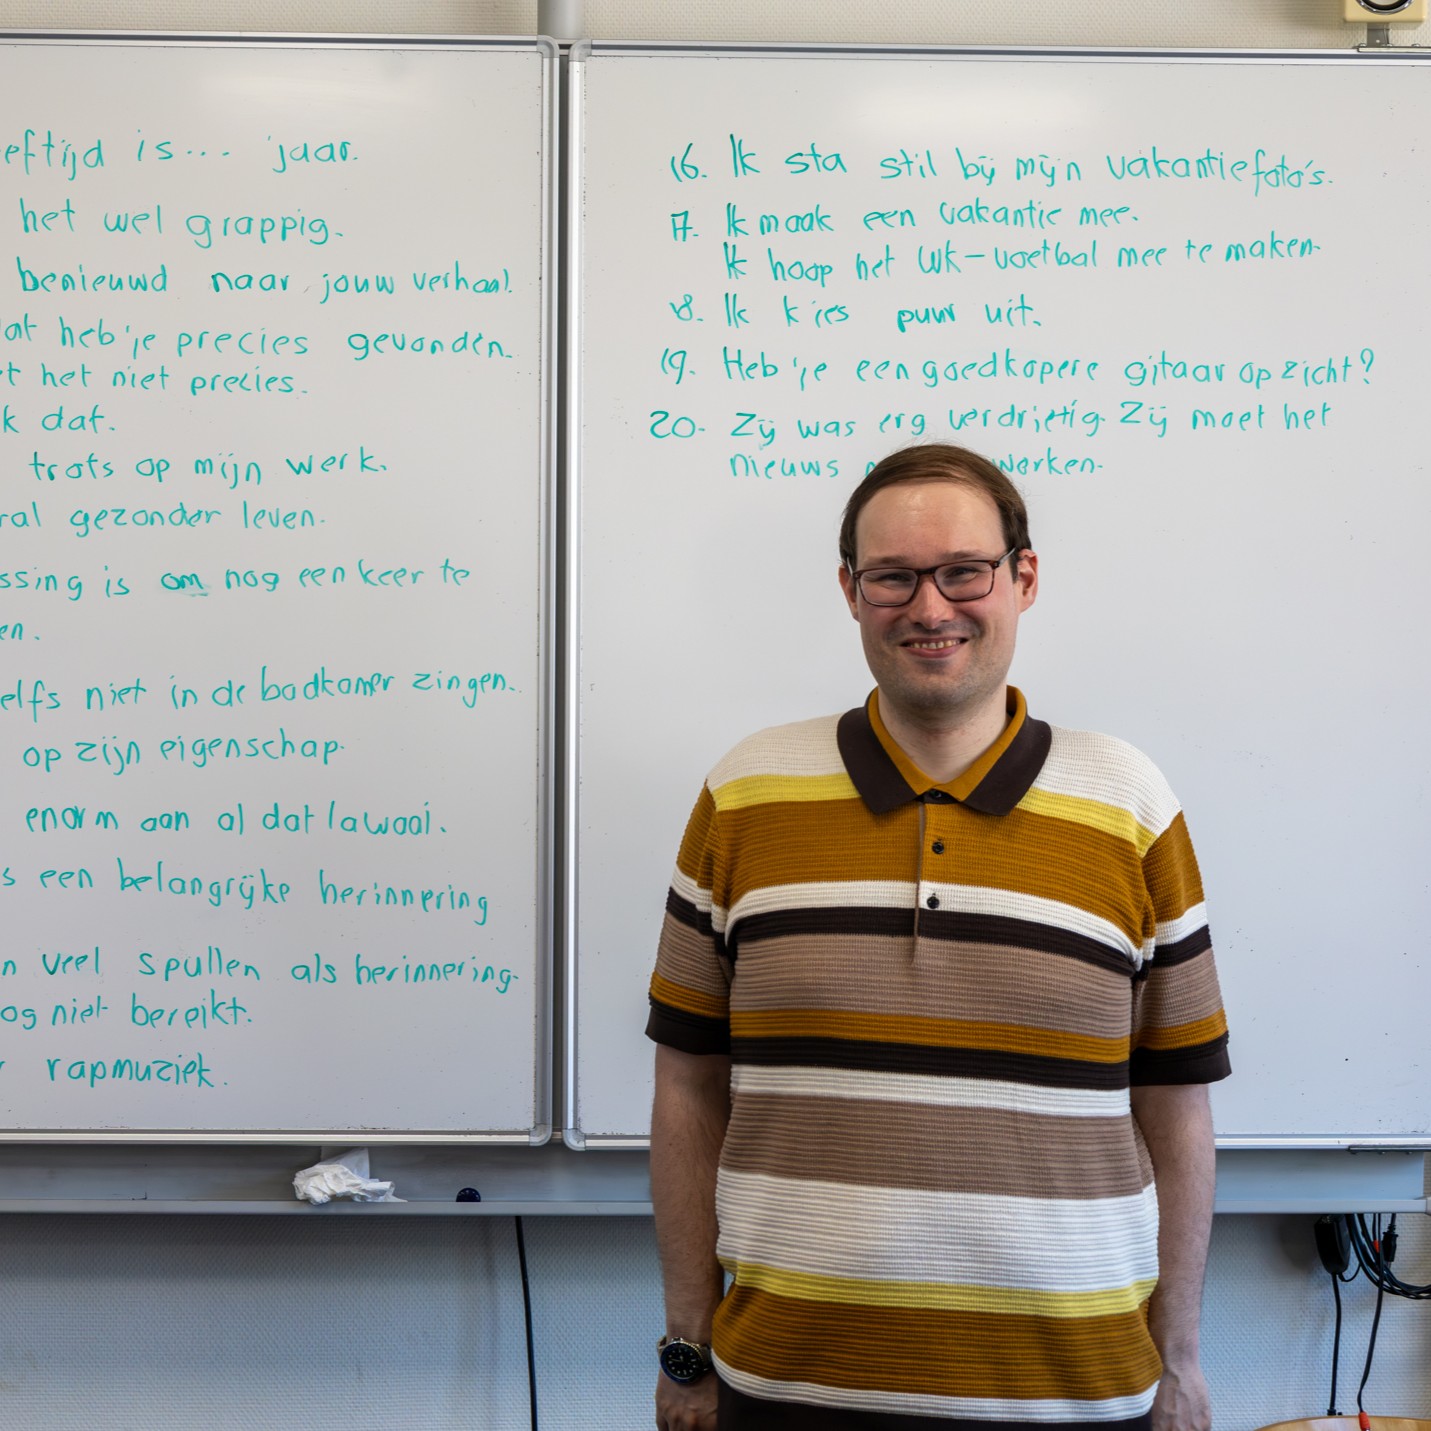 eftijd is... jaar.
het wel grappig.
benieuwd naar jouw verhaal.
at heb je precies gevonden.
t het niet precies.
k dat.
trots op mijn werk.
ral gezonder leven.
ssing is om nog een keer te
en.
elfs niet in de badkamer zingen.
op zijn eigenschap.
enorm aan al dat lawaai.
s een belangrijke herinnering
n veel spullen als herinnering.
og niet bereikt.
r rapmuziek.
16. Ik sta stil bij mijn vakantiefoto's.
17. Ik maak een vakantie mee.
Ik hoop het WK-voetbal mee te maken.
18. Ik kies puur uit.
19. Heb je een goedkopere gitaar op zicht?
20. Zij was erg verdrietig. Zij moet het
nieuws werken.